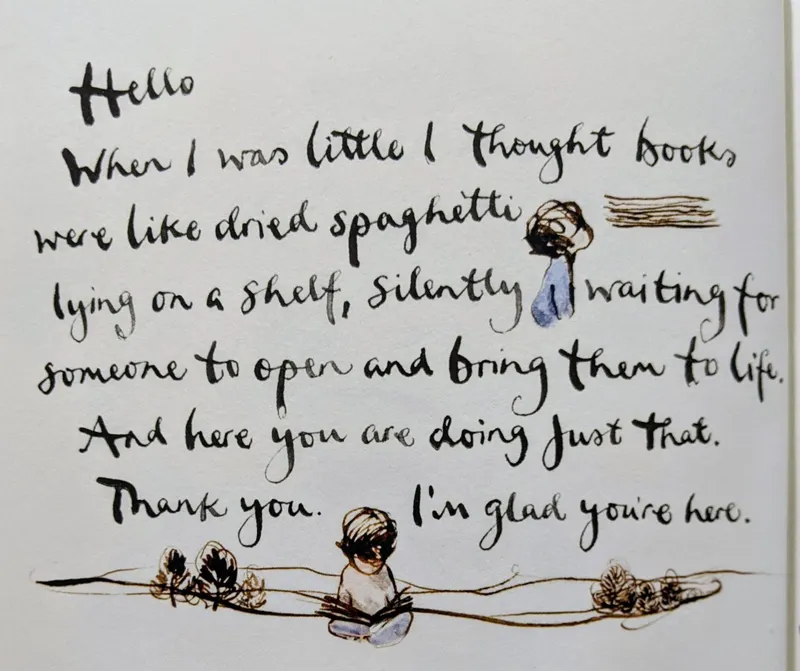 Hello
When I was little I thought books
were like dried spaghetti
lying on a shelf, silently waiting for
someone to open and bring them to life.
And here you are doing just that.
Thank you. I'm glad you're here.